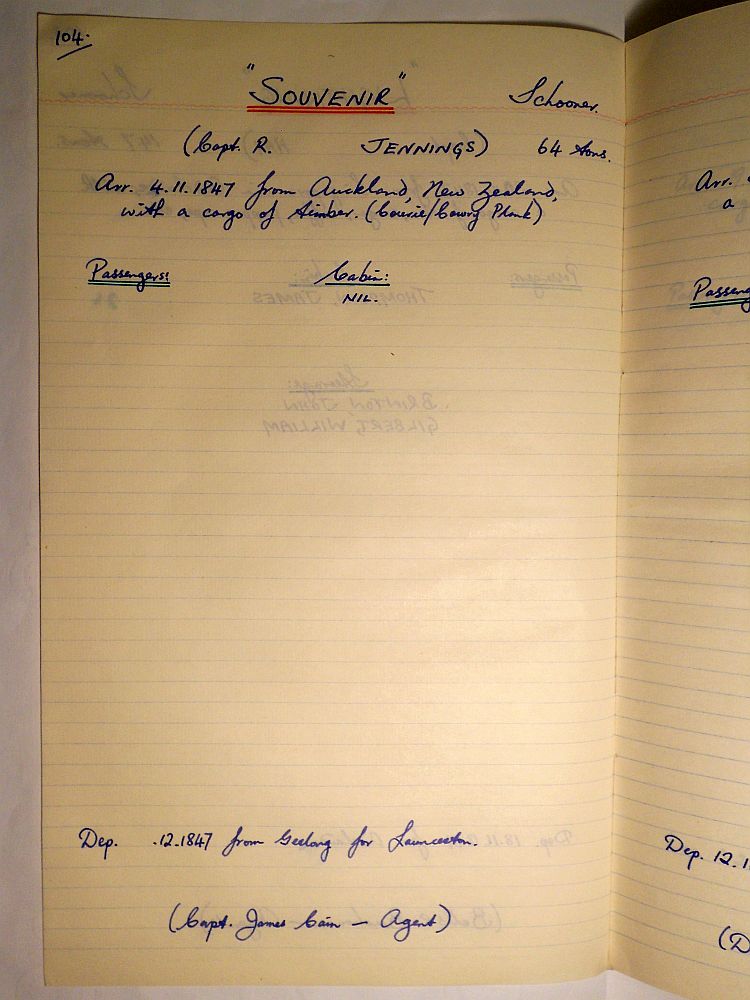 104.
"SOUVENIR" Schooner.
(Capt. R. JENNINGS) 64 tons.
Arr. 4.11.1847 from Auckland, New Zealand,
with a cargo of timber. (Courie/Cowry Plank)
Passengers: Cabin:
NIL.
Dep. .12.1847 from Geelong for Launceston.
(Capt. James Cain — Agent)
Arr.
a
Passeng
Dep. 12.1
(D